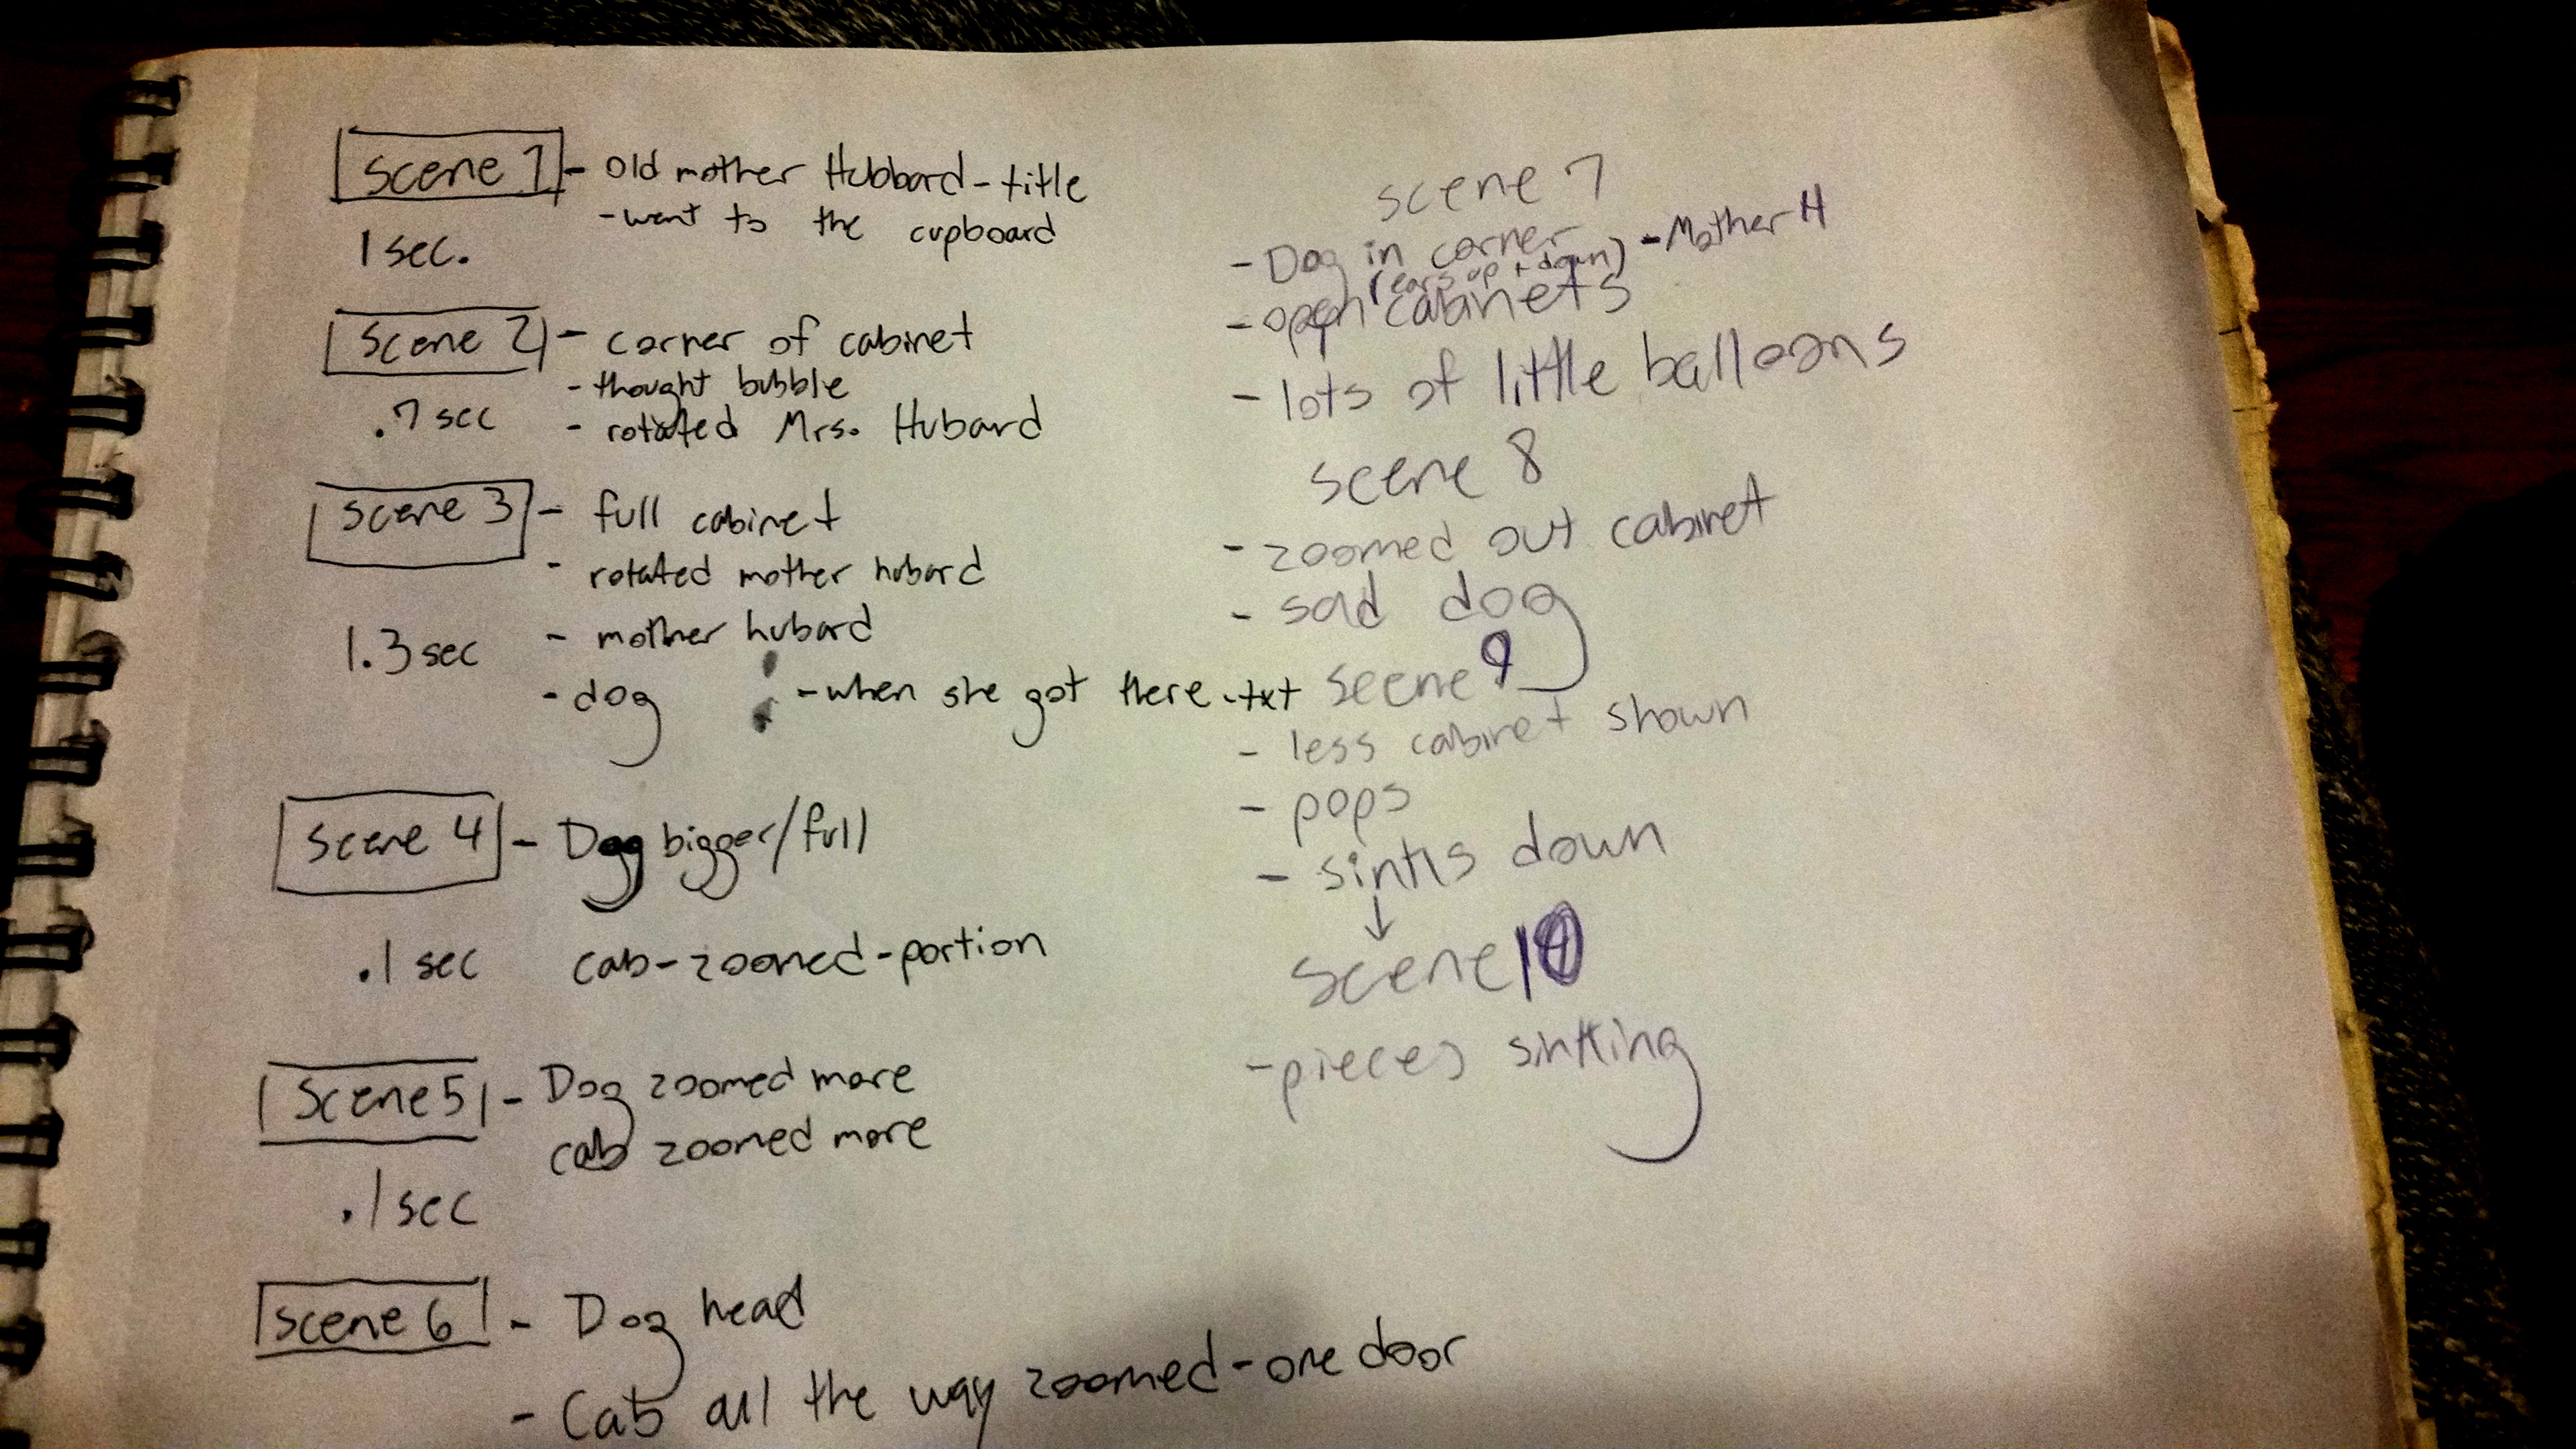 scene 1 - old mother Hubbard - title
- went to the cupboard
1 sec.
scene 2 - corner of cabinet
- thought bubble
.7 sec - rotated Mrs. Hubard
scene 3 - full cabinet
- rotated mother hubard
1.3 sec - mother hubard
- dog - when she got there .txt
scene 4 - Dog bigger/full
.1 sec cab-zoomed-portion
scene 5 - Dog zoomed more
cab zoomed more
.1 sec
scene 6 - Dog head
- Cab all the way zoomed - one door
scene 7
- Dog in corner - Mother H
(ears up + down)
- open cabinets
- lots of little balloons
scene 8
- zoomed out cabinet
- sad dog
scene 9
- less cabinet shown
- pops
- sinks down
↓
scene 10
- pieces sinking